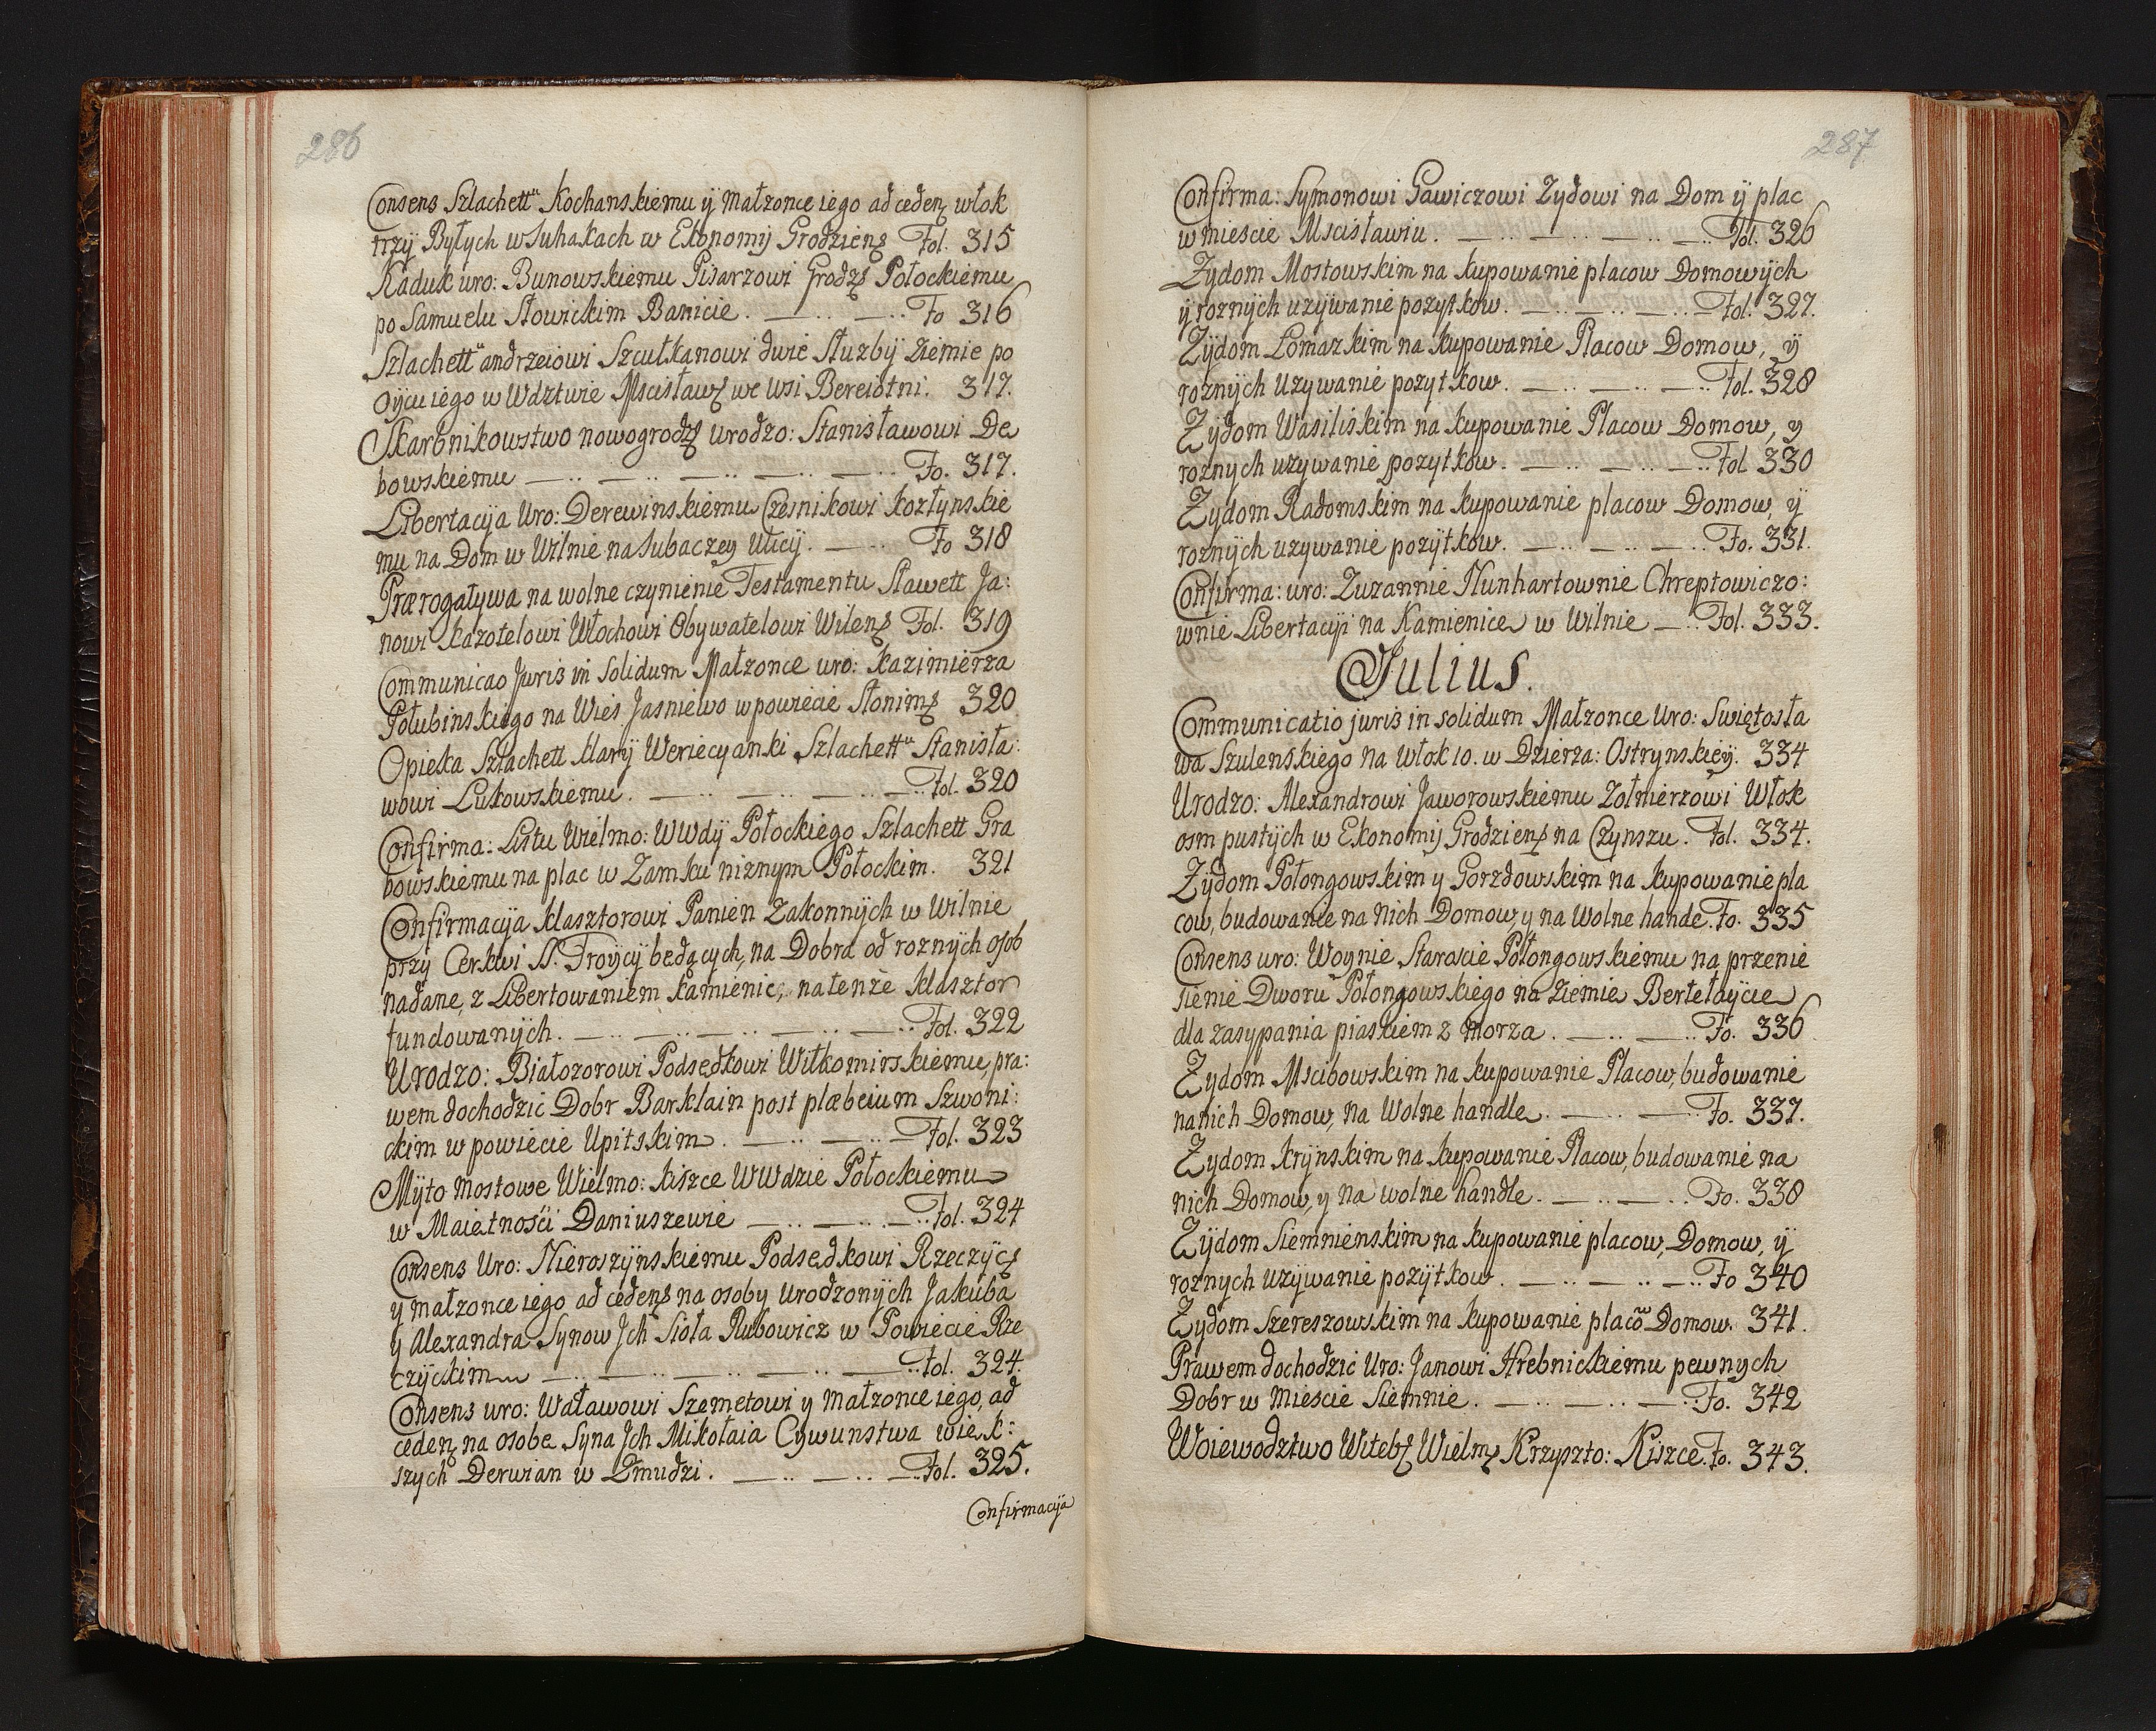 286
Consens Szlachettu Kochanskiemu ÿ Małzonce iego ad ceden włok
trzÿ Byłych w Suhakach w Ekonomij Grodziens Fol. 315
Kaduk uro: Bunowskiemu Pisarzowi Grodz Połockiemu
po Samuelu Słowickim Banicie. Fo 316
Szlachettu andrzeiowi Szcutkanowi dwie Służbÿ Ziemie po
Oÿcu iego w Wdztwie Mscisław we Wsi Bereiotni. 317.
Skarbnikowstwo nowogrodz urodzo: Stanisławowi De
bowskiemu Fo. 317.
Libertacija Uro: Derewinskiemu Czesnikowi Kozłynskie
mu na Dom w Wilnie na Subaczey Ulicÿ. Fo 318
Prærogatywa na wolne czynienie Testamentu Sławett Ja:
nowi Kazotelowi Włochowi Obywatelowi Wilens Fol. 319
Communicao Juris in Solidum Małzonce uro: Kazimierza
Połubinskiego na Wies Jasniewo w powiecie Słonims 320
Opieka Szlachett Marÿ Weriecyanki Szlachettu Stanisła:
wowi Lukowskiemu. Fol. 320
Confirma: Listu Wielmo: WWdÿ Połockiego Szlachett Gra
bowskiemu na plac w Zamku niznym Połockim. 321
Confirmacija Klasztorowi Panien Zakonnÿch w Wilnie
przÿ Cerkwi S. Troÿcÿ bedących, na Dobra od roznÿch osob
nadane, z Libertowaniem Kamienic, na tenże Klasztor
fundowanÿch. Fol. 322
Urodzo: Białozorowi Podsedkowi Wiłkomirskiemu, pra:
wem dochodzic Dobr Barklain post plæbeium Szwoni:
ckim w powiecie Upitskim. Fol. 323
Mÿto Mostowe Wielmo: Kiszce WWdzie Połockiemu
w Maietnośći Daniuszewie Fol. 324
Consens Uro: Nieroszÿnskiemu Podsedkowi Rzeczÿc
y małzonce iego ad cedens na osoby Urodzonÿch Jakuba
y Alexandra Synow Jch Sioła Rubowicz w Powiecie Rze
czÿckim Fol. 324.
Consens uro: Wacławowi Szemetowi y małzonce iego, ad
ceden na osobe Syna Jch Mikołaia Cywunstwa wiek:
szych Derwian w Zmudzi. Fol. 325.
Confirmacija
287
Confirma: Symonowi Gawiczowi Zydowi na Dom ÿ plac
w miescie Mscisławiu. Fol. 326
Zydom Mostowskim na kupowanie placow Domowÿch
ÿ roznÿch uzÿwanie pozytkow. Fol. 327.
Zÿdom Łomazkim na kupowanie Placow Domow, y
roznÿch Uzywanie pozytkow. Fol. 328
Zydom Wasiliskim na kupowanie Placow Domow, y
roznych uzywanie pozytkow. Fol 330
Zydom Radomskim na kupowanie placow Domow, ÿ
roznÿch uzywanie pozÿtkow. Fo. 331.
Confirma: uro: Zuzannie Nunhartownie Chreptowiczo:
wnie Libertacÿi na Kamienice w Wilnie Fol. 333.
Julius.
Communicatio juris in solidum Małzonce Uro: Swiętosła
wa Szulenskiego na Włok 10. w Dzierza: Ostrynskieÿ. 334
Urodzo: Alexandrowi Jaworowskiemu Zołnierzowi Włok
osm pustÿch w Ekonomij Grodziens na Czynszu. Fol. 334.
Zÿdom Połongowskim y Gorzdowskim na kupowanie pla
cow, budowanie na Nich Domow, y na Wolne hande. Fo. 335
Consens uro: Woynie Staroscie Połongowskiemu na przenie
sienie Dworu Połongowskiego na Ziemie Bertelaÿcie
dla zasypania piaskiem z Morza. Fo. 336
Zydom Mscibowskim na kupowanie Placow, budowanie
na nich Domow, na Wolne handle. Fo. 337.
Zydom Krÿnskim na kupowanie Placow, budowanie na
nich Domow, y na wolne handle. Fo. 338
Zÿdom Siemnienskim na kupowanie placow, Domow, ÿ
roznych uzÿwanie pozÿtkow. Fo 340
Zydom Szereszowskim na kupowanie placow Domow. 341.
Prawem dochodzic Uro: Janowi Hrebnickiemu pewnych
Dobr w Miescie Siemnie. Fo. 342
Woiewodztwo Witebs Wielm Krzyszto: Kiszce. Fo. 343.